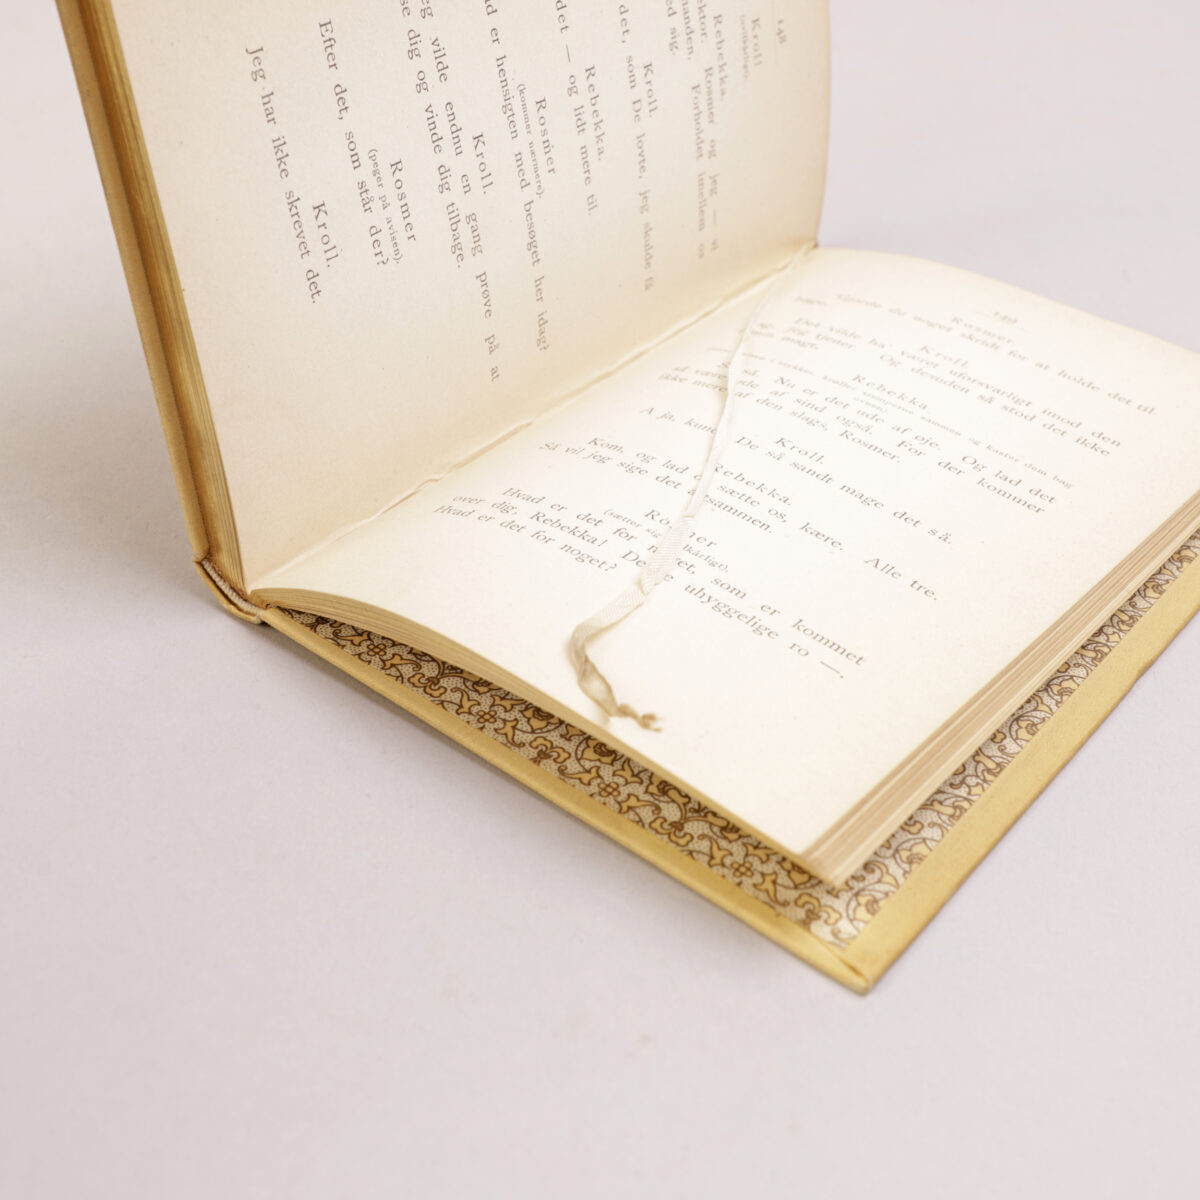 148
Kroll
Rebekka.
Rosmer og jeg — vi
Forholdet imellem os
ed sig.
Kroll.
det, som De lovte, jeg skulde få
Rebekka.
det — og lidt mere til.
Rosmer
(kommer nærmere).
ad er hensigten med besøget her idag?
Kroll.
eg vilde endnu en gang prøve på at
se dig og vinde dig tilbage.
Rosmer
(peger på avisen).
Efter det, som står der?
Kroll.
Jeg har ikke skrevet det.
— 149 —
Rosmer.
Gjorde du noget skridt for at holde det til-
bage.
Kroll.
Det vilde ha' været uforsvarligt imod den
sag, jeg tjener. Og desuden så stod det ikke
magt.
Rebekka
stykker, krøller stumperne sammen og kaster dem bag
ovnen).
så. Nu er det ude af øje. Og lad det
så være ude af sind også. For der kommer
ikke mere af den slags, Rosmer.
Kroll.
A ja, kun De så sandt mage det så.
Rebekka.
Kom, og lad sætte os, kære. Alle tre.
Så vil jeg sige det altsammen.
Rosmer
(sætter sig
Hvad er det for noget, som er kommet
over dig, Rebekka! Denne uhyggelige ro —.
Hvad er det for noget?